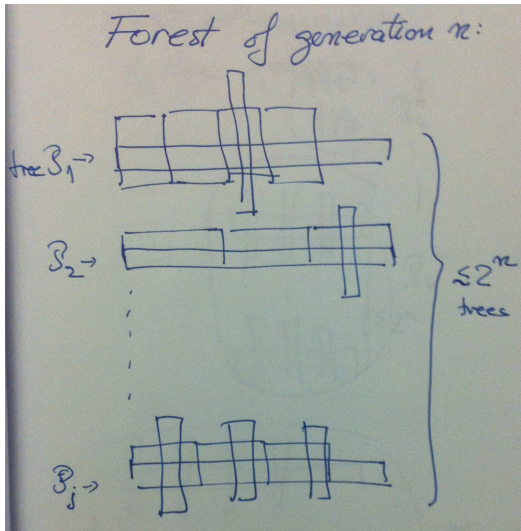 Forest of generation n:
tree P₁→
P₂→
≲2ⁿ
trees
Pⱼ→